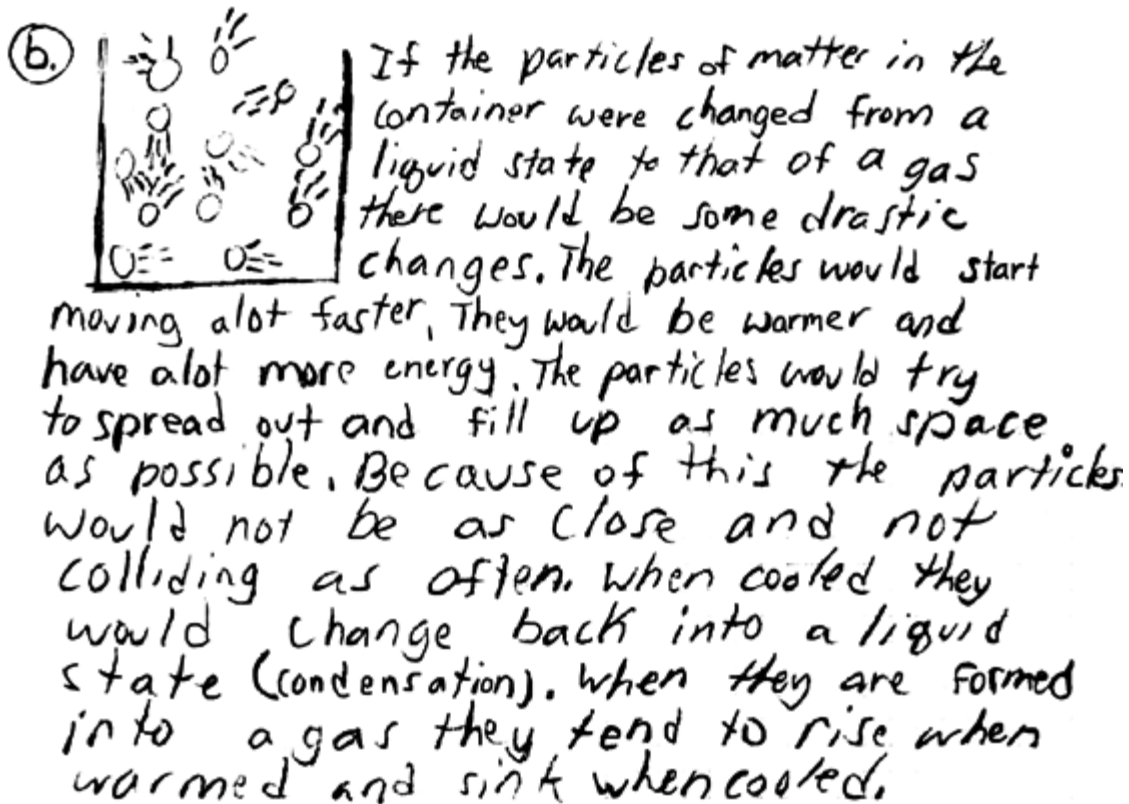 b.
If the particles of matter in the
container were changed from a
liquid state to that of a gas
there would be some drastic
changes. The particles would start
moving alot faster. They would be warmer and
have alot more energy. The particles would try
to spread out and fill up as much space
as possible. Because of this the particles
would not be as close and not
colliding as often. When cooled they
would change back into a liquid
state (condensation). When they are formed
into a gas they tend to rise when
warmed and sink when cooled.